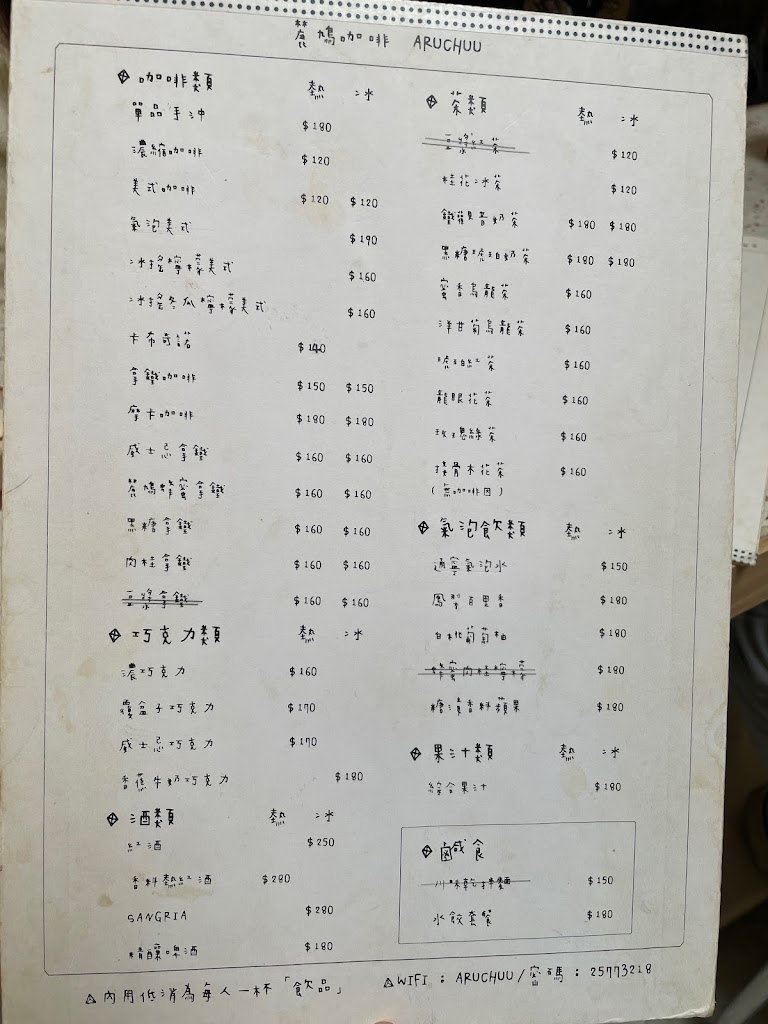 麓鳩咖啡 ARUCHUU
咖啡類 熱 冰
單品手沖 $180
濃縮咖啡 $120
美式咖啡 $120 $120
氣泡美式 $190
冰搖檸檬美式 $160
冰搖冬瓜檸檬美式 $160
卡布奇諾 $140
拿鐵咖啡 $150 $150
摩卡咖啡 $180 $180
威士忌拿鐵 $160 $160
麓鳩蜂蜜拿鐵 $160 $160
黑糖拿鐵 $160 $160
肉桂拿鐵 $160 $160
豆漿拿鐵 $160 $160
巧克力類 熱 冰
濃巧克力 $160
覆盆子巧克力 $170
威士忌巧克力 $170
香蕉牛奶巧克力 $180
酒類 熱 冰
紅酒 $250
香料熱紅酒 $280
SANGRIA $280
精釀啤酒 $180
茶類 熱 冰
豆漿紅茶 $120
桂花冰茶 $120
鐵觀音奶茶 $180 $180
黑糖琥珀奶茶 $180 $180
蜜香烏龍茶 $160
洋甘菊烏龍茶 $160
琥珀紅茶 $160
龍眼花茶 $160
玫瑰綠茶 $160
接骨木花茶 $160
(無咖啡因)
氣泡飲類 熱 冰
通寧氣泡水 $150
鳳梨百里香 $180
白桃葡萄柚 $180
蜂蜜肉桂檸檬 $180
糖漬香料蘋果 $180
果汁類 熱 冰
綜合果汁 $180
鹹食
川味乾拌麵 $150
水餃套餐 $180
內用低消為每人一杯「飲品」
WIFI : ARUCHUU / 密碼 : 25773218